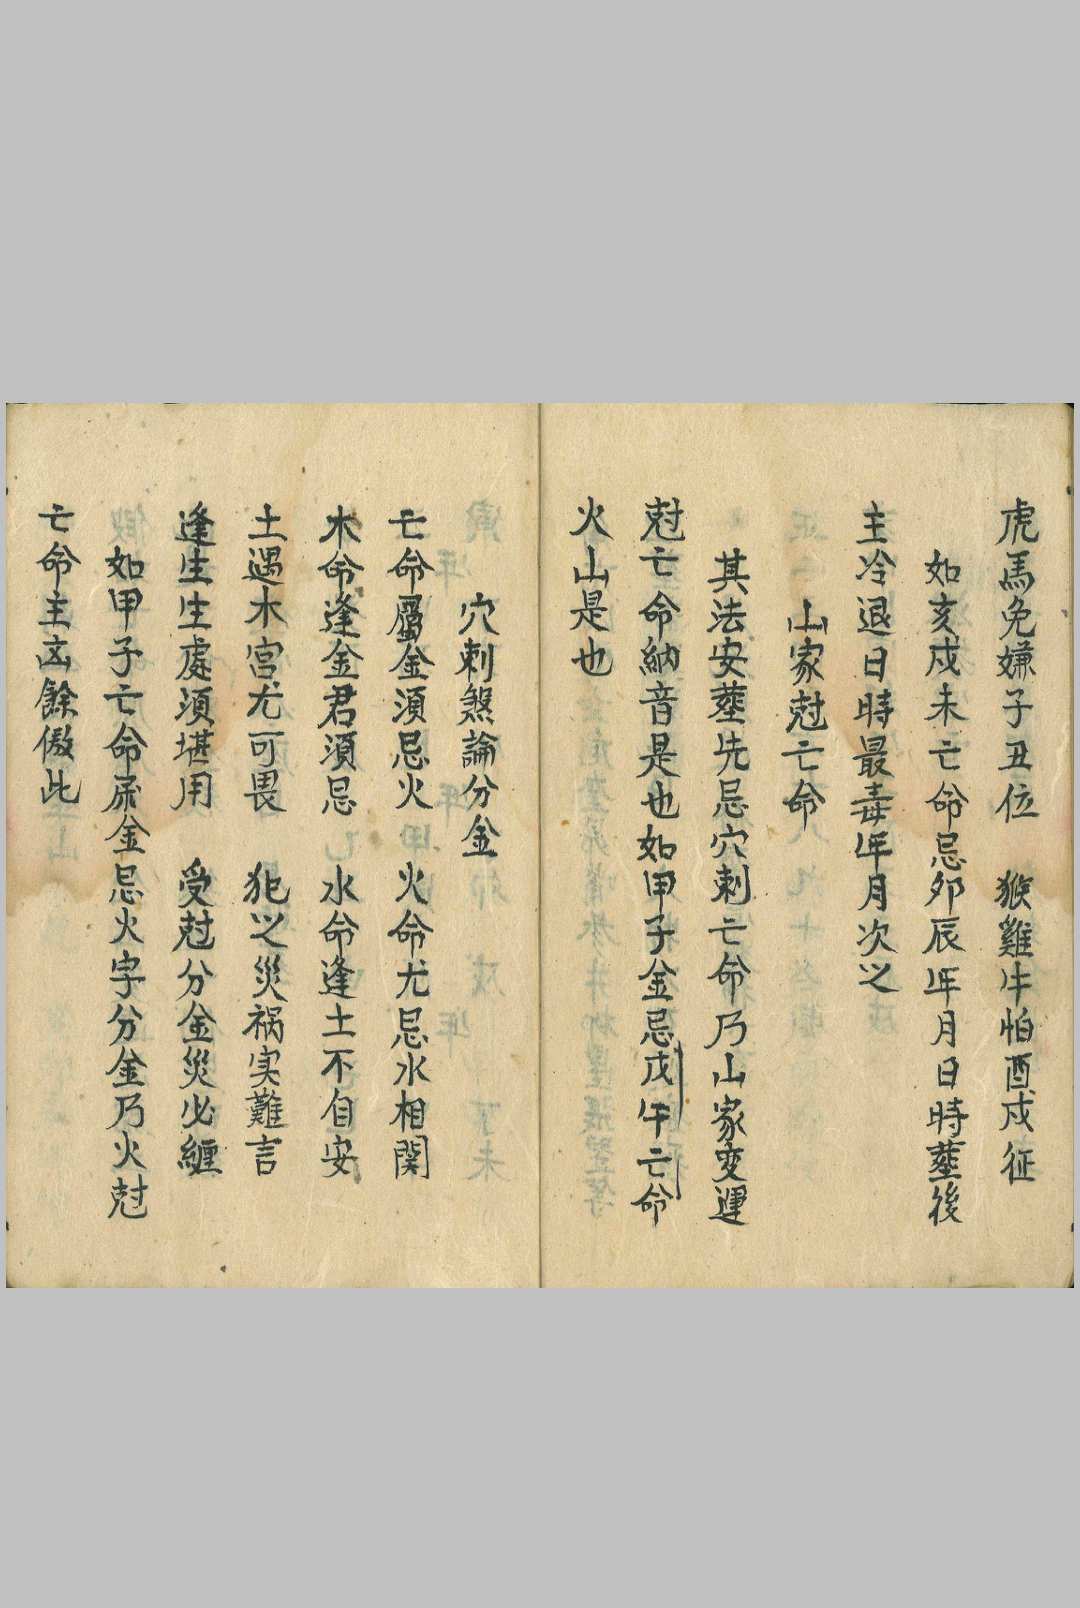 虎馬兔嫌子丑位　猴雞牛怕酉戌征
如亥戌未亡命忌夘辰年月日時塟後
主冷退日時最毒年月次之
山家尅亡命
其法安塟先忌穴刺亡命乃山家变運
尅亡命納音是也如甲子金忌戊午亡命
火山是也
穴刺煞論分金
亡命屬金須忌火　火命尤忌水相関
木命逢金君須忌　水命逢土不自安
土遇木宮尤可畏　犯之災禍实難言
逢生生處須堪用　受尅分金災必纏
如甲子亡命屬金忌火字分金乃火尅
亡命主凶餘倣此